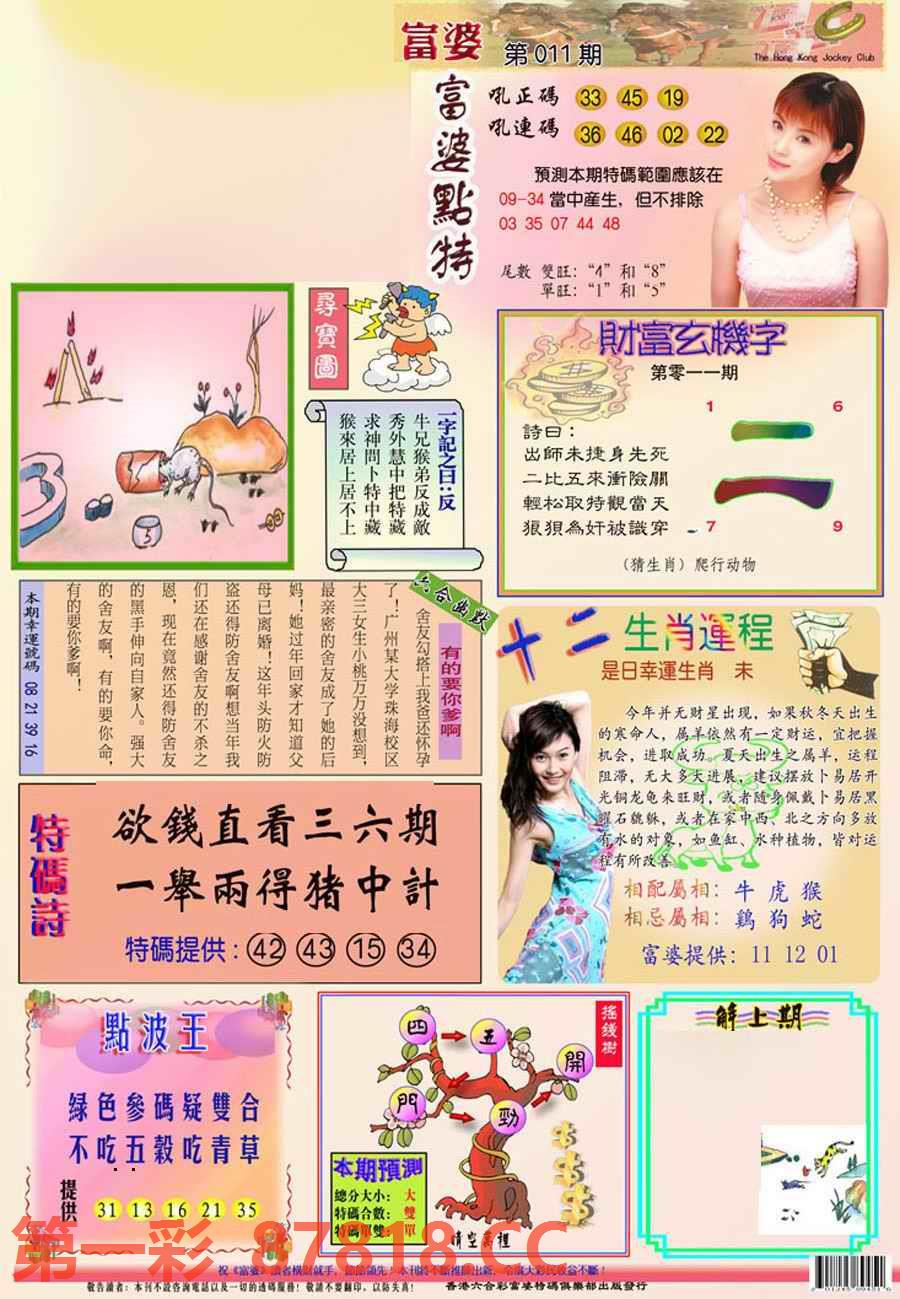 富婆 第011期
The Hong Kong Jockey Club
富婆點特
吼正碼 33 45 19
吼連碼 36 46 02 22
預測本期特碼範圍應該在
09-34當中産生，但不排除
03 35 07 44 48
尾數 雙旺：“4”和“8”
單旺：“1”和“5”
尋寶圖
5
一字記之曰：反
牛兄猴弟反成敵
秀外慧中把特藏
求神問卜特中藏
猴來居上居不上
財富玄機字
第零一一期
1 6
二
7 9
詩曰：
出師未捷身先死
二比五來衝險關
輕松取特觀當天
狼狽為奸被識穿
（猜生肖）爬行动物
六合幽默
有的要你爹啊
舍友勾搭上我爸还怀孕
了！广州某大学珠海校区
大三女生小桃万万没想到，
最亲密的舍友成了她的后
妈！她过年回家才知道父
母已离婚！这年头防火防
盗还得防舍友啊想当年我
们还在感谢舍友的不杀之
恩，现在竟然还得防舍友
的黑手伸向自家人。强大
的舍友啊，有的要你命，
有的要你爹啊！
本期幸運號碼 08 21 39 16
十二生肖運程
是日幸運生肖 未
今年并无财星出现，如果秋冬天出生
的寒命人，属羊依然有一定财运，宜把握
机会，进取成功。夏天出生之属羊，运程
阻滞，无大多大进展，建议摆放卜易居开
光铜龙龟来旺财，或者随身佩戴卜易居黑
曜石貔貅，或者在家中西、北之方向多放
有水的对象，如鱼缸、水种植物，皆对运
程有所改善
相配屬相：牛 虎 猴
相忌屬相：鷄 狗 蛇
富婆提供：11 12 01
特碼詩
欲錢直看三六期
一舉兩得猪中計
特碼提供：42 43 15 34
點波王
緑色參碼疑雙合
不吃五穀吃青草
提供 31 13 16 21 35
搖錢樹
四 五
門 勁 開
本期預測
總分大小：大
特碼合數：雙
特碼單雙：單
晴空萬裡
解上期
第一彩 87818.CC
祝《富婆》讀者橫財就手，節節領先！本刊將不斷推陳出新，令廣大彩民收益不斷！
敬告讀者：本刊不設咨詢電話以及一切的透碼服務！敬請不要翻印，以防失真！
香港六合彩富婆特碼俱樂部出版發行